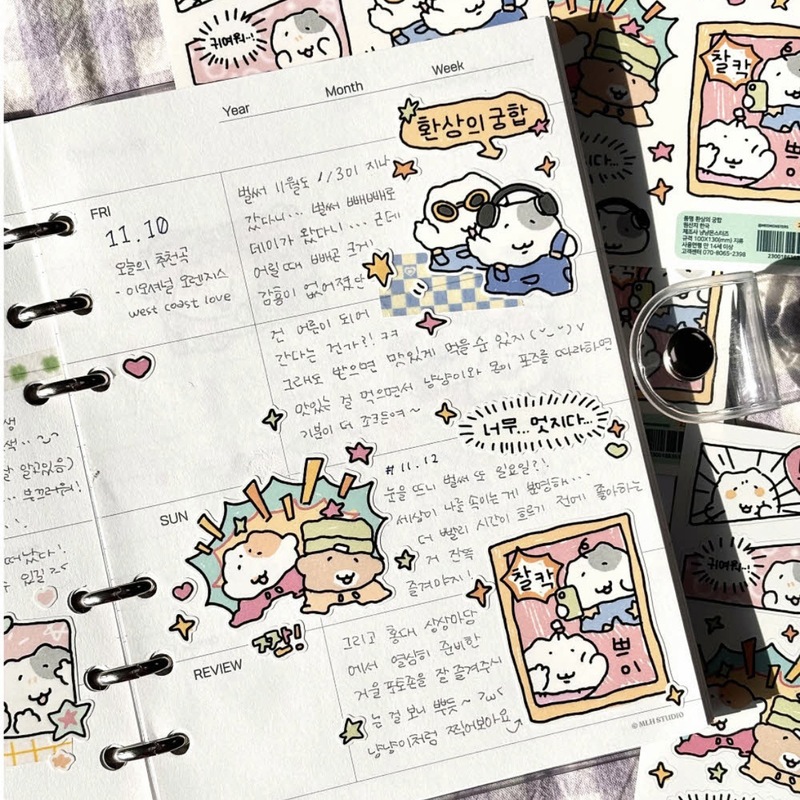 귀여워..!
Year
Month
Week
환상의 궁합
FRI
11.10
오늘의 추천곡
- 이모셔널 오렌지스
west coast love
벌써 11월도 1/3이 지나
갔다니... 벌써 빼빼로
데이가 왔다니... 근데
어릴 때 빼곤 크게
감흥이 없어졌단
건 어른이 되어
간다는 건가?! ㅋㅋ
그래도 받으면 맛있게 먹을 수 있지
맛있는 걸 먹으면서 냥냥이와 몬이 포즈를 따라하면
기분이 더 조크든여~
너무...멋지다...
#11.12
눈을 뜨니 벌써 또 일요일?!
세상이 나를 속이는 게 분명해...
더 빨리 시간이 흐르기 전에 좋아하는
거 잔뜩
즐겨야지!
SUN
짜잔!
찰칵
쁘이
REVIEW
그리고 홍대 상상마당
에서 열심히 준비한
거울 포토존을 잘 즐겨주시
는 걸 보니 뿌듯~
냥냥이처럼 찍어보아요
© MLH STUDIO
알고있음)
부끄러워!
떠났다!
찰칵
쁘이
품명 환상의 궁합
원산지 한국
규격 100X130(mm) 지류
사용연령 만 14세 이상
고객센터 070-8065-2398
귀여워..!